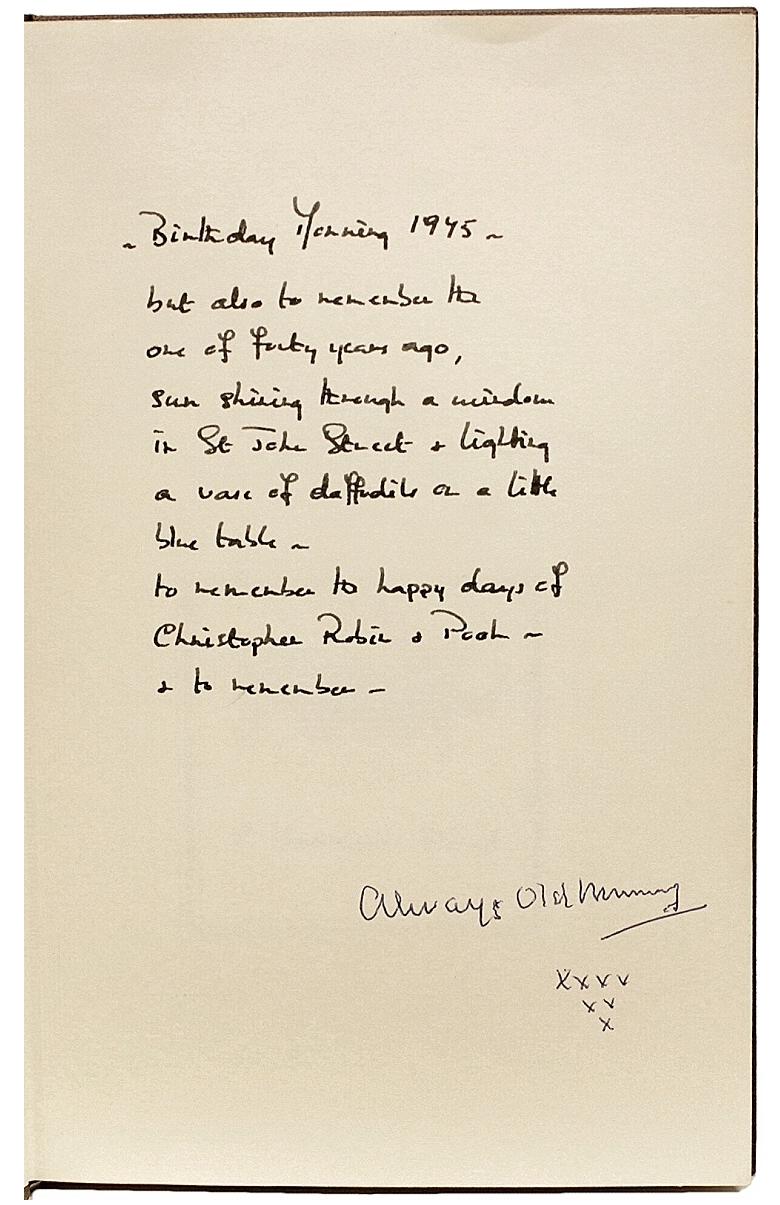 ~ Birthday Morning 1945 ~
but also to remember the
one of forty years ago,
sun shining through a window
in St John Street & lighting
a vase of daffodils on a little
blue table ~
to remember to happy days of
Christopher Robin & Pooh ~
& to remember –
Always Old Mummy
XXXX
XX
X